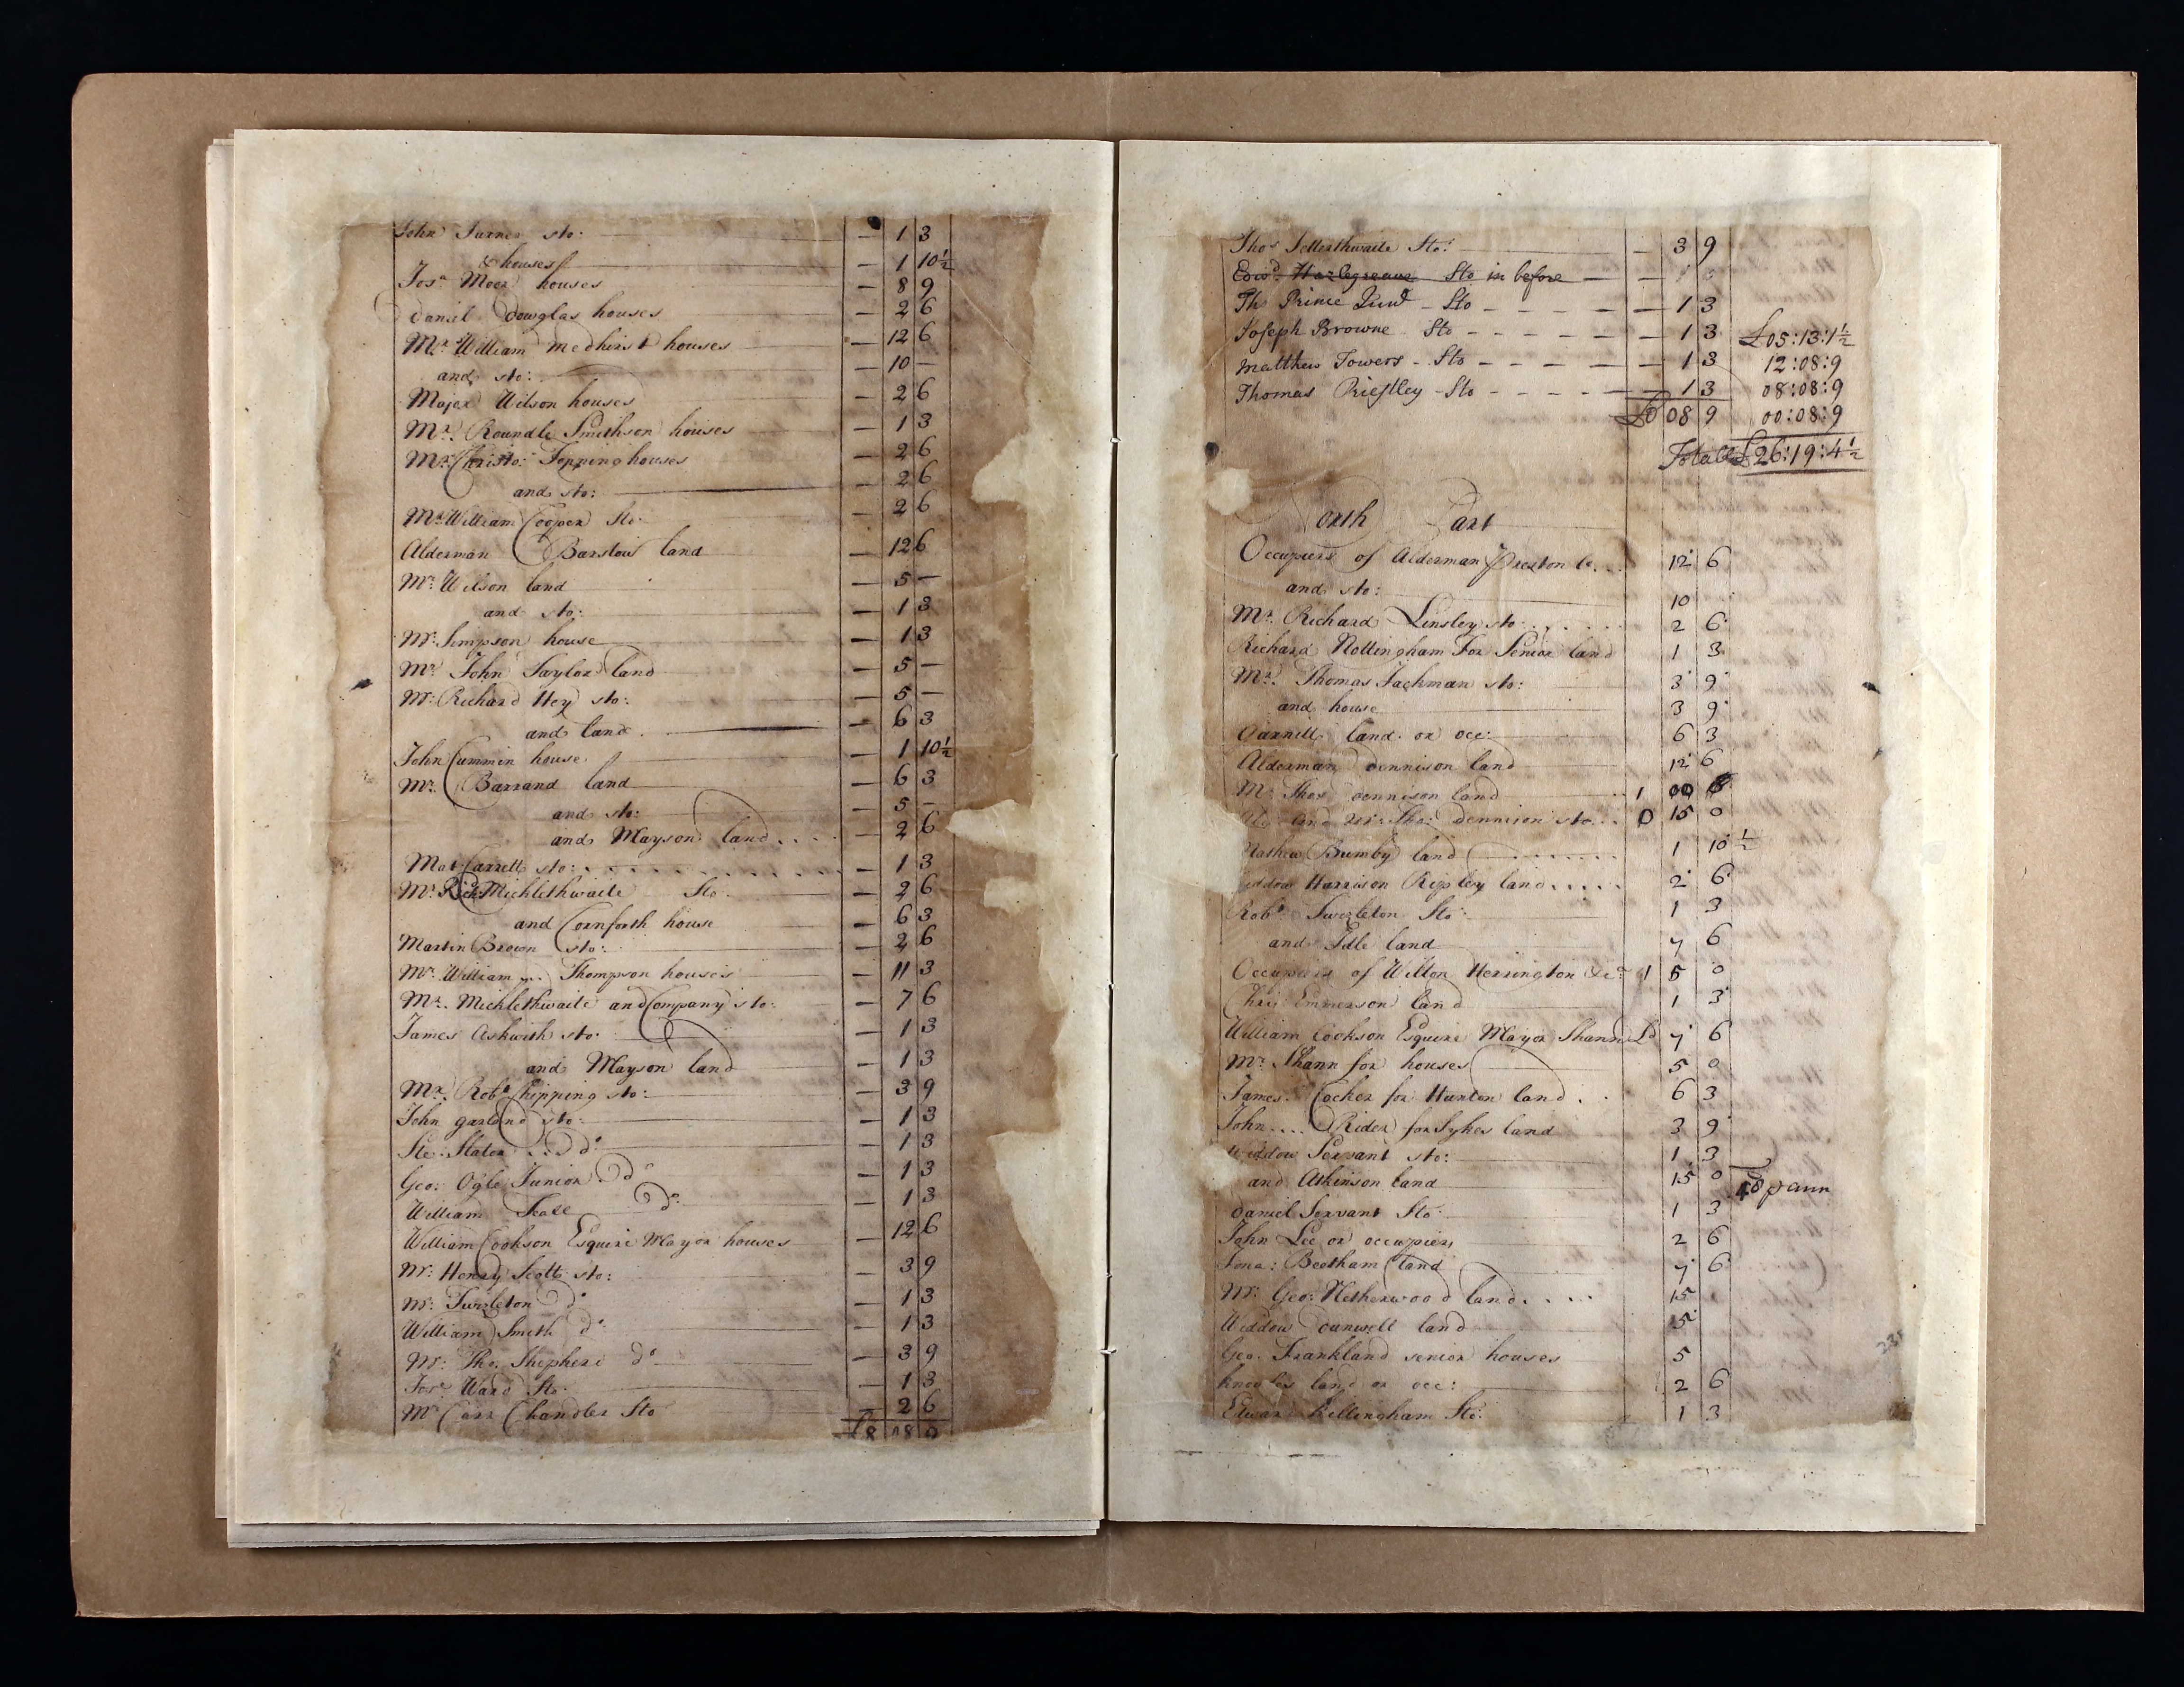 John Turner sto: — 1 3
& houses — 1 10½
Josa. Moor houses — 8 9
daniel Douglas houses — 2 6
Mr. William Medhirst houses — 12 6
and sto: — 10 —
Major Wilson houses — 2 6
Mr. Roundle Smithson houses — 1 3
Mr. Christo: Topping houses — 2 6
and sto: — 2 6
Mr. William Cooper Sto: — 2 6
Alderman Barstow land — 12 6
Mr: Wilson land — 5 —
and sto: — 1 3
Mr: Simpson house — 1 3
Mr. John Taylor land — 5 —
Mr: Richard Hey sto: — 5 —
and land — 6 3
John Cummin house — 1 10½
Mr. Barrand land — 6 3
and sto: — 5 —
and Mayson land — 2 6
Mat Carrett sto: — 1 3
Mr. Rich Michlethwaite Sto. — 2 6
and Cornforth house — 6 3
Martin Brown sto: — 2 6
Mr. William Thompson houses — 11 3
Mr. Michlethwaite and Company sto: — 7 6
James Askwith sto: — 1 3
and Mayson land — 1 3
Mr. Robt. Chipping sto: — 3 9
John garland sto: — 1 3
Ste: Slater do — 1 3
Geo: Ogle Junior do — 1 3
William do: — 1 3
William Cookson Esquire Mayor houses — 12 6
Mr: Henry Scott sto: — 3 9
Mr: Twizleton do — 1 3
William Smith do — 1 3
Mr: Tho. Shepherd do — 3 9
Josa. Ward Sto. — 1 3
Mr Carr Chandler Sto — 2 6
£8 08 9
Thos Setterthwaite Sto: — 3 9
Edwd. Hazlegreave Sto in before —
Tho Prince Jund – Sto — 1 3
Joseph Browne Sto — 1 3 £05:13:1½
Matthew Towers - Sto — 1 3 12:08:9
Thomas Priestley - Sto — 1 3 08:08:9
£0 08 9 00:08:9
Totall £26:19:4½
North Part
Occupiers of Alderman Preston 12 6
and sto: 10
Mr. Richard Linsley sto 2 6
Richard Nottingham For Senior land 1 3
Mr. Thomas Jackman sto: 3 9
and house 3 9
land or occ: 6 3
Alderman dennison land 12 6
Mr Thos dennison land 1 00
and Mr: Tho: dennison sto 0 15 0
Mathew Bumby land 1 10½
Widdow Harrison Ripley land 2 6
Robt. Twizleton Sto: 1 3
and Idle land 7 6
Occupiers of Wilton Herrington &c. 1 5 0
Chris: Emmerson land 1 3
William Cookson Esquire Mayor Shann Ld 7 6
Mr. Shann for houses 5 0
James Cocker for Hunton land 6 3
John .... Rider for Sykes land 3 9
Widdow Servant sto: 1 3
and Atkinson land 15 0 p ann
daniel Servant Sto: 1 3
John Lee or occupiers 2 6
Jona: Beetham land 7 6
Mr: Geo: Netherwood land 15
Widdow land 5
Geo. Frankland senior houses 5
Knowles land or occ: 2 6
Edward Killingham Sto: 1 3